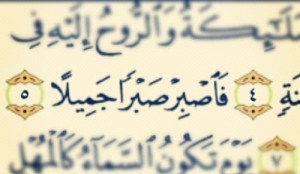 ٱلْمَلَـٰٓئِكَةُ وَٱلرُّوحُ إِلَيْهِ فِى
نَةٍ ٤ فَٱصْبِرْ صَبْرًا جَمِيلًا ٥
٧ يَوْمَ تَكُونُ ٱلسَّمَآءُ كَٱلْمُهْلِ